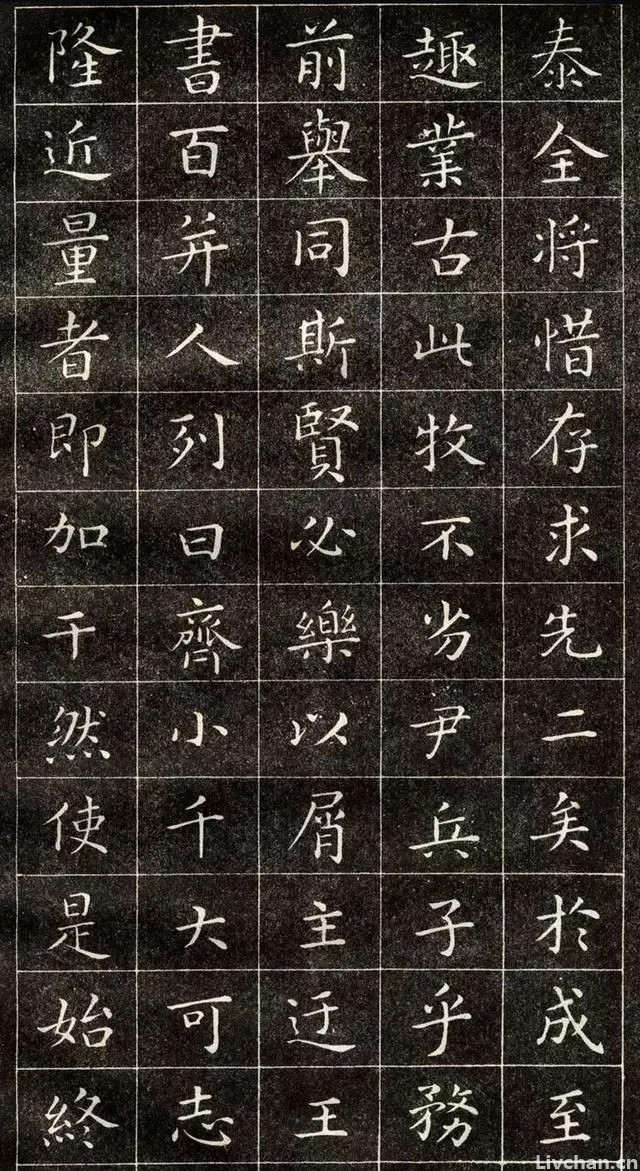 泰全将惜存求先二矣於成至
趣業古此牧不劣尹兵子乎務
前舉同斯賢必樂以屑主迂王
書百并人列曰齊小千大可志
隆近量者即加干然使是始終
Livchan.cn